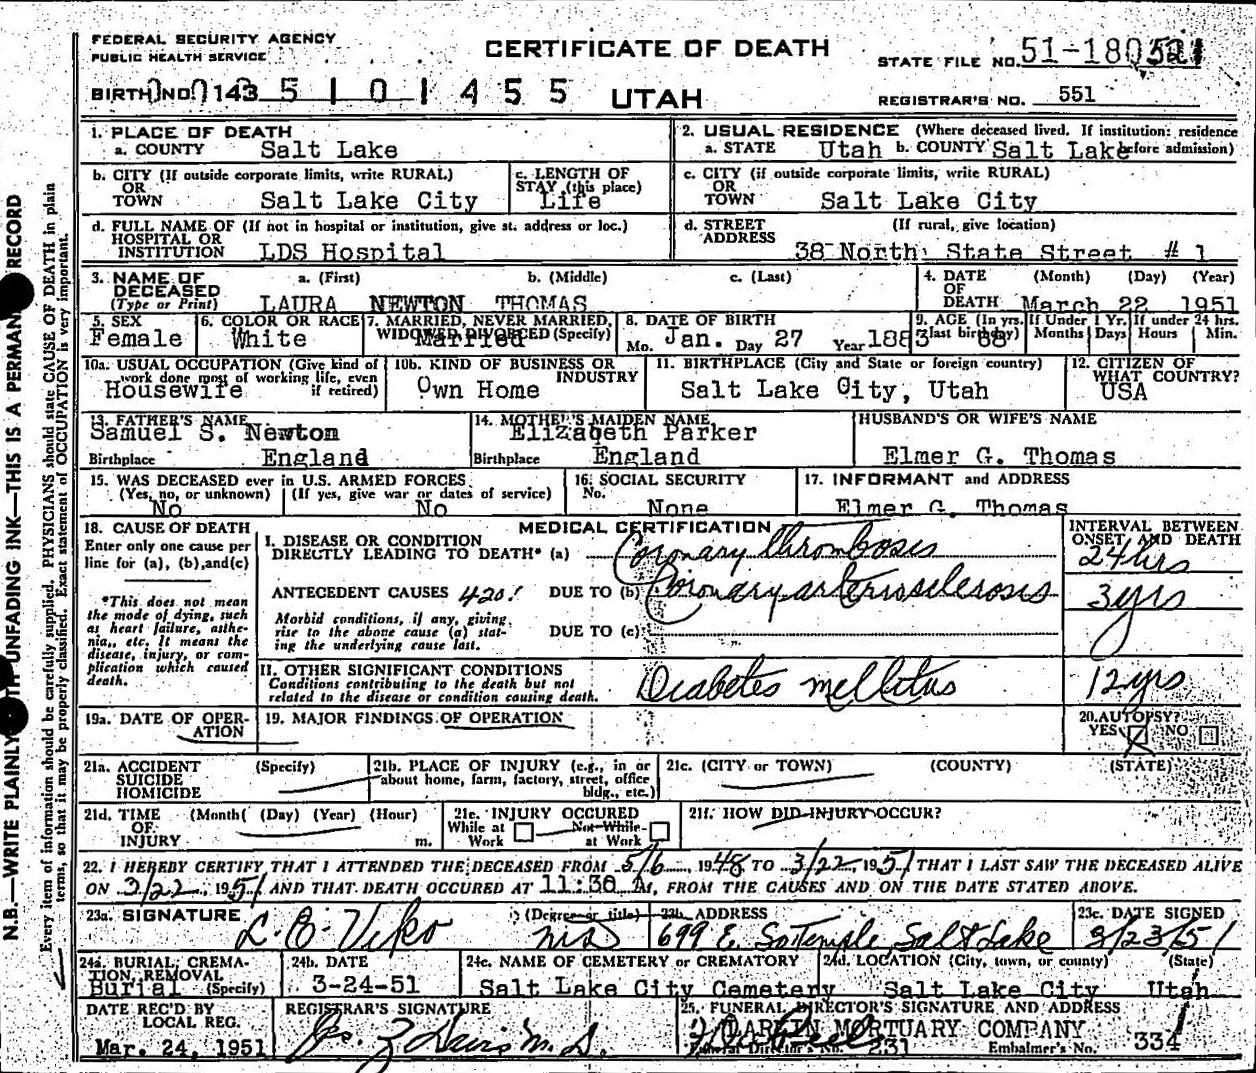 FEDERAL SECURITY AGENCY
PUBLIC HEALTH SERVICE
CERTIFICATE OF DEATH
STATE FILE NO. 51-180
BIRTH NO. 143 5 1 0 1 4 5 5 UTAH
REGISTRAR'S NO. 551
1. PLACE OF DEATH
a. COUNTY Salt Lake
2. USUAL RESIDENCE (Where deceased lived. If institution: residence before admission)
a. STATE Utah b. COUNTY Salt Lake
b. CITY (If outside corporate limits, write RURAL)
OR
TOWN Salt Lake City
c. LENGTH OF
STAY (this place)
Life
c. CITY (if outside corporate limits, write RURAL)
OR
TOWN Salt Lake City
d. FULL NAME OF (If not in hospital or institution, give st. address or loc.)
HOSPITAL OR
INSTITUTION LDS Hospital
d. STREET (If rural, give location)
ADDRESS
38 North State Street # 1
3. NAME OF a. (First) b. (Middle) c. (Last)
DECEASED
(Type or Print) LAURA NEWTON THOMAS
4. DATE (Month) (Day) (Year)
OF
DEATH March 22 1951
5. SEX
Female
6. COLOR OR RACE
White
7. MARRIED, NEVER MARRIED,
WIDOWED, DIVORCED (Specify)
Married
8. DATE OF BIRTH
Mo. Jan. Day 27 Year 1883
9. AGE (In yrs.
last birthday)
68
If Under 1 Yr.
Months Days
If under 24 hrs.
Hours Min.
10a. USUAL OCCUPATION (Give kind of
work done most of working life, even
if retired)
Housewife
10b. KIND OF BUSINESS OR
INDUSTRY
Own Home
11. BIRTHPLACE (City and State or foreign country)
Salt Lake City, Utah
12. CITIZEN OF
WHAT COUNTRY?
USA
13. FATHER'S NAME
Samuel S. Newton
Birthplace England
14. MOTHER'S MAIDEN NAME
Elizabeth Parker
Birthplace England
HUSBAND'S OR WIFE'S NAME
Elmer G. Thomas
15. WAS DECEASED ever in U.S. ARMED FORCES.
(Yes, no, or unknown) (If yes, give war or dates of service)
No No
16. SOCIAL SECURITY
No.
None
17. INFORMANT and ADDRESS
Elmer G. Thomas
18. CAUSE OF DEATH
Enter only one cause per
line for (a), (b), and(c)
*This does not mean
the mode of dying, such
as heart failure, asthe-
nia, etc. It means the
disease, injury, or com-
plication which caused
death.
MEDICAL CERTIFICATION
INTERVAL BETWEEN
ONSET AND DEATH
I. DISEASE OR CONDITION
DIRECTLY LEADING TO DEATH* (a) Coronary thrombosis 24 hrs
ANTECEDENT CAUSES 420.1 DUE TO (b) Coronary arteriosclerosis 3 yrs
Morbid conditions, if any, giving
rise to the above cause (a) stat-
ing the underlying cause last.
DUE TO (c)
II. OTHER SIGNIFICANT CONDITIONS
Conditions contributing to the death but not
related to the disease or condition causing death.
Diabetes mellitus 12 yrs
19a. DATE OF OPER-
ATION
19. MAJOR FINDINGS OF OPERATION
20. AUTOPSY?
YES NO
21a. ACCIDENT (Specify)
SUICIDE
HOMICIDE
21b. PLACE OF INJURY (e.g., in or
about home, farm, factory, street, office
bldg., etc.)
21c. (CITY or TOWN) (COUNTY) (STATE)
21d. TIME (Month) (Day) (Year) (Hour)
OF
INJURY m.
21e. INJURY OCCURED
While at Not While
Work at Work
21f. HOW DID INJURY OCCUR?
22. I HEREBY CERTIFY THAT I ATTENDED THE DECEASED FROM 5/6, 1948 TO 3/22, 1951 THAT I LAST SAW THE DECEASED ALIVE
ON 3/22, 1951 AND THAT DEATH OCCURED AT 11:30 A M, FROM THE CAUSES AND ON THE DATE STATED ABOVE.
23a. SIGNATURE (Degree or title)
L. E. Viko MD
23b. ADDRESS
699 E. So Temple, Salt Lake
23c. DATE SIGNED
3/23/51
24a. BURIAL, CREMA-
TION, REMOVAL
Burial (Specify)
24b. DATE
3-24-51
24c. NAME OF CEMETERY or CREMATORY
Salt Lake City Cemetery
24d. LOCATION (City, town, or county) (State)
Salt Lake City Utah
DATE REC'D BY
LOCAL REG.
Mar. 24, 1951
REGISTRAR'S SIGNATURE
M.D.
25. FUNERAL DIRECTOR'S SIGNATURE AND ADDRESS
LARKIN MORTUARY COMPANY
Funeral Director's No. 231 Embalmer's No. 334
N.B.—WRITE PLAINLY WITH UNFADING INK—THIS IS A PERMANENT RECORD
Every item of information should be carefully supplied. PHYSICIANS should state CAUSE OF DEATH in plain
terms, so that it may be properly classified. Exact statement of OCCUPATION is very important.